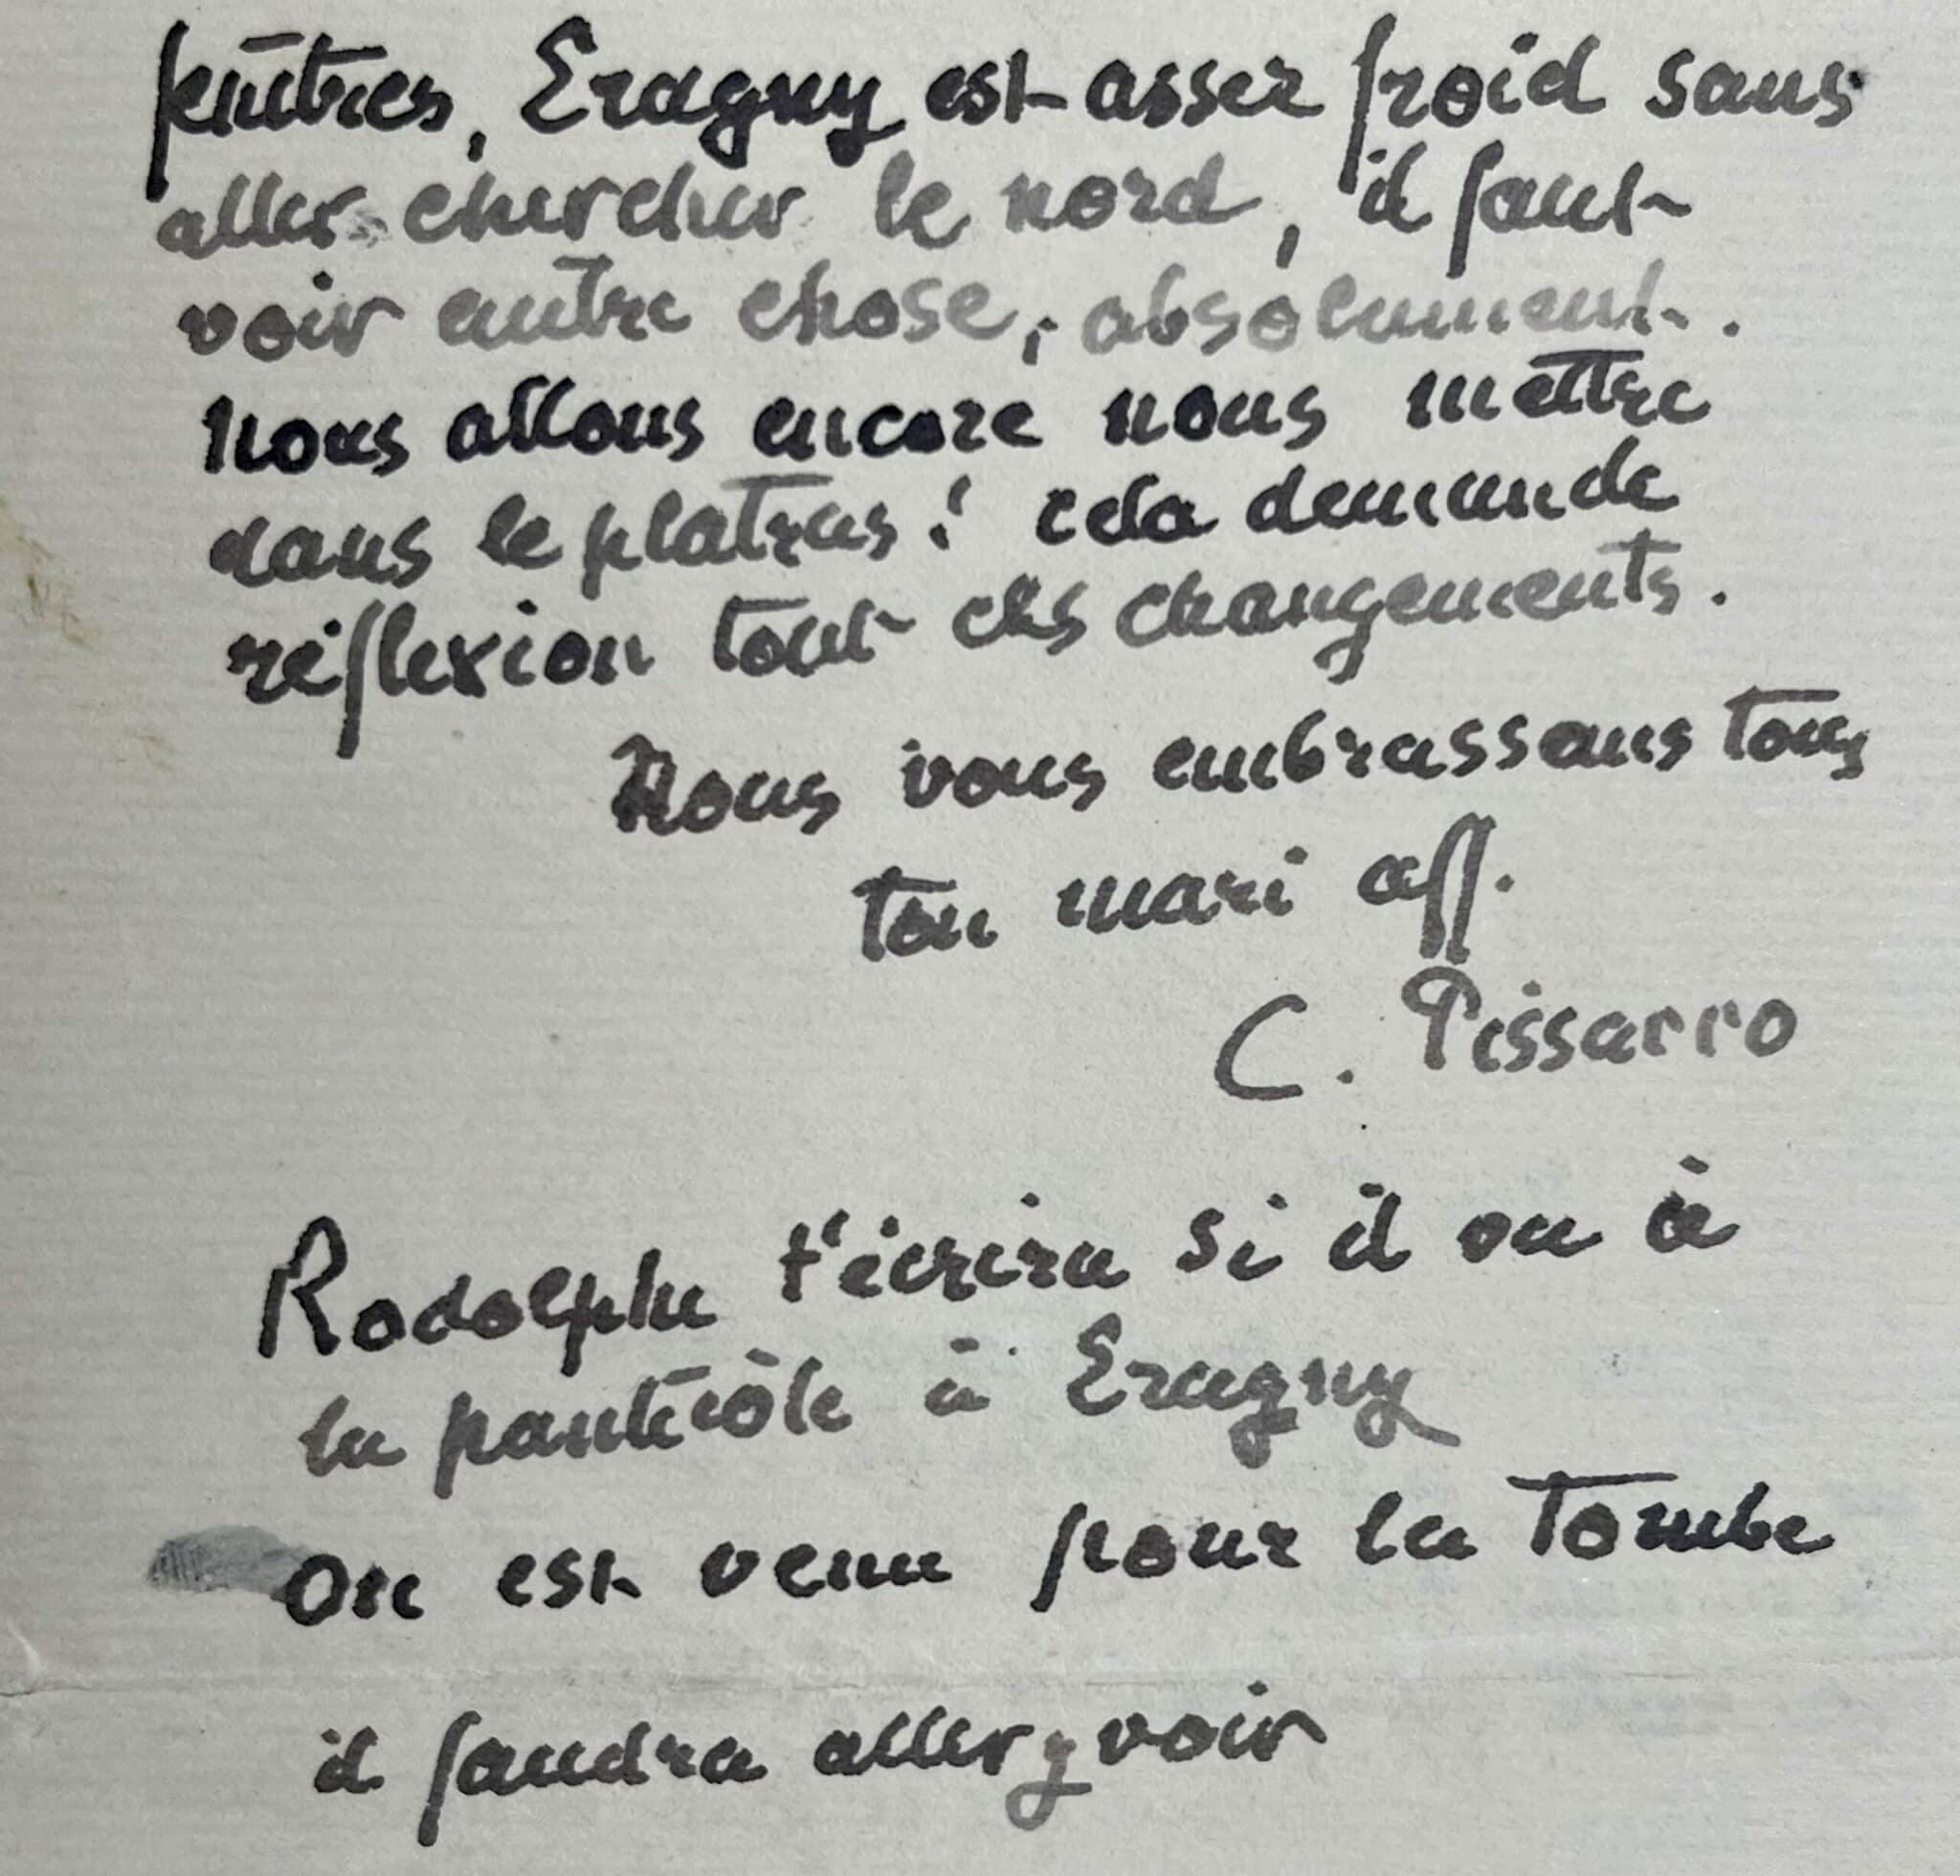 fenêtres, Eragny est assez froid sans
aller chercher le nord, il faut
voir autre chose, absolument.
Nous allons encore nous mettre
dans le platras! cela demande
réflexion tout ces changements.
Nous vous embrassons tous
ton mari aff.
C. Pissarro
Rodolphe t'écrira si il va à
la pantecôte à Eragny
On est venu pour la Tombe
il faudra aller y voir